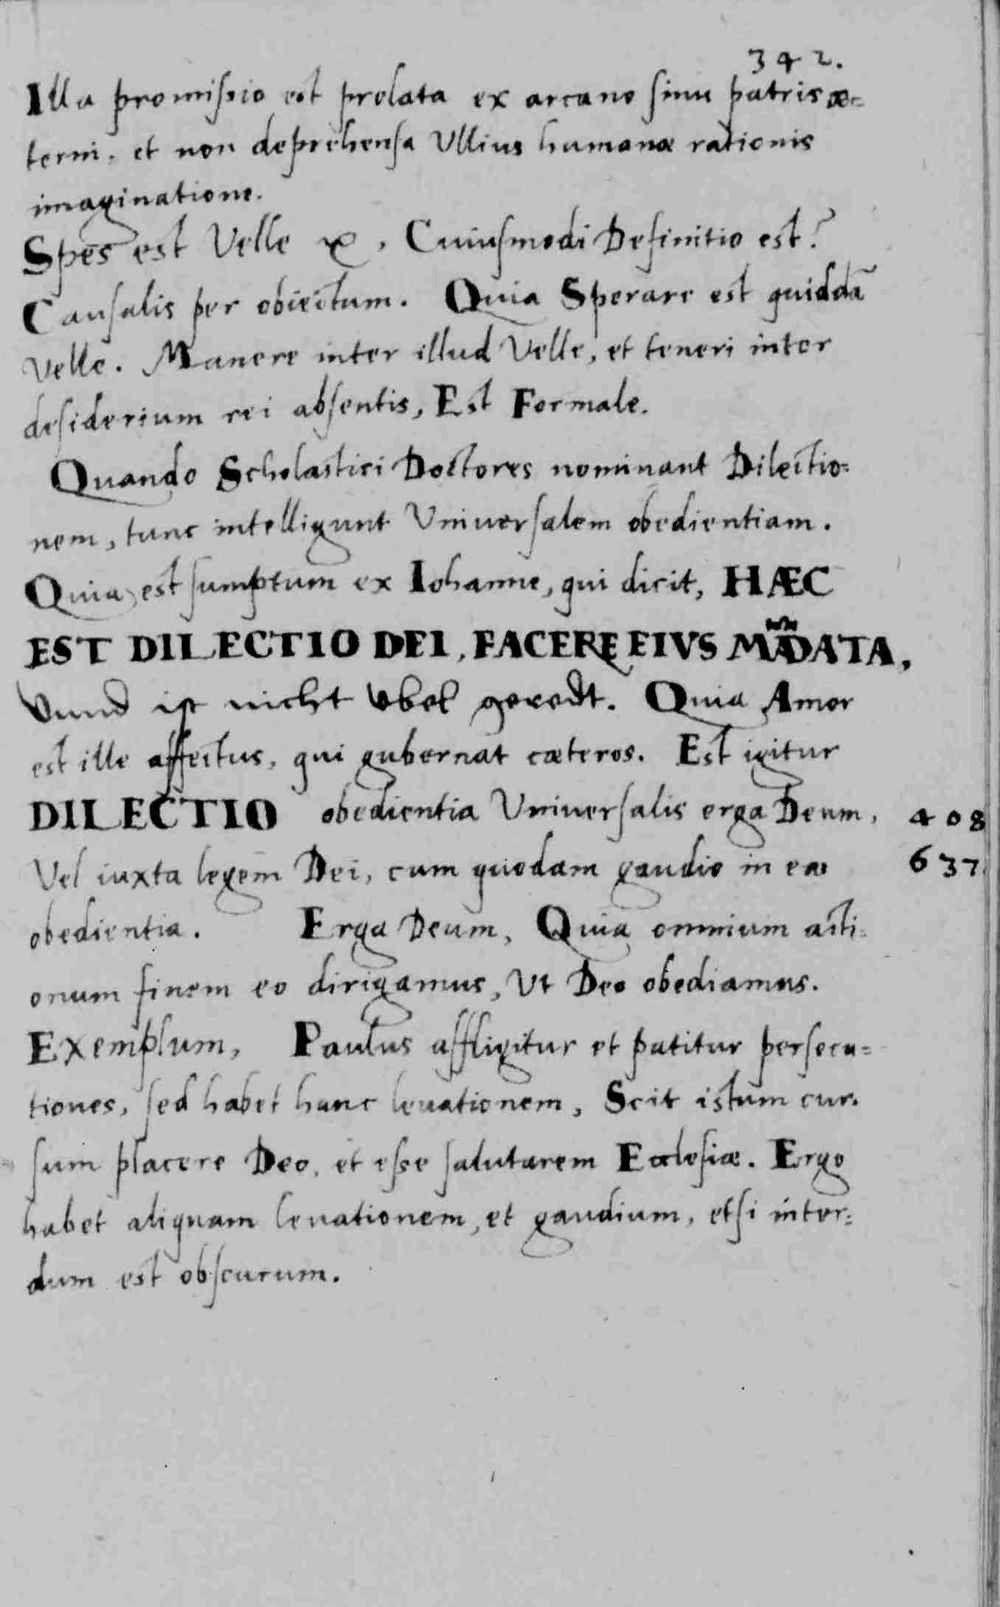 342.
Illa promissio est prolata ex arcano sinu patris æ=
terni. et non deprehensa Ullius humanæ rationis
imaginatione.
Spes est Velle &. Cuiusmodi Definitio est?
Causalis per obiectum. Quia Sperare est quiddā
Velle. Manere inter illud Velle, et teneri inter
desiderium rei absentis, Est Formale.
Quando Scholastici Doctores nominant Dilectio=
nem, tunc intelligunt Universalem obedientiam.
Quia est sumptum ex Iohanne, qui dicit, HÆC
EST DILECTIO DEI, FACERE EIVS MĀDATA,
Vnnd ist nicht Vbel geredt. Quia Amor
est ille affectus, qui gubernat cæteros. Est igitur
DILECTIO obedientia Universalis erga Deum, 408
Vel iuxta legem Dei, cum quodam gaudio in ea 637.
obedientia. Erga Deum, Quia omnium acti=
onum finem eo dirigamus, Ut Deo obediamus.
Exemplum, Paulus affligitur et patitur persecu=
tiones, sed habet hanc levationem, Scit istum cur=
sum placere Deo, et esse salutarem Ecclesiæ. Ergo
habet aliquam levationem, et gaudium, etsi inter=
dum est obscurum.